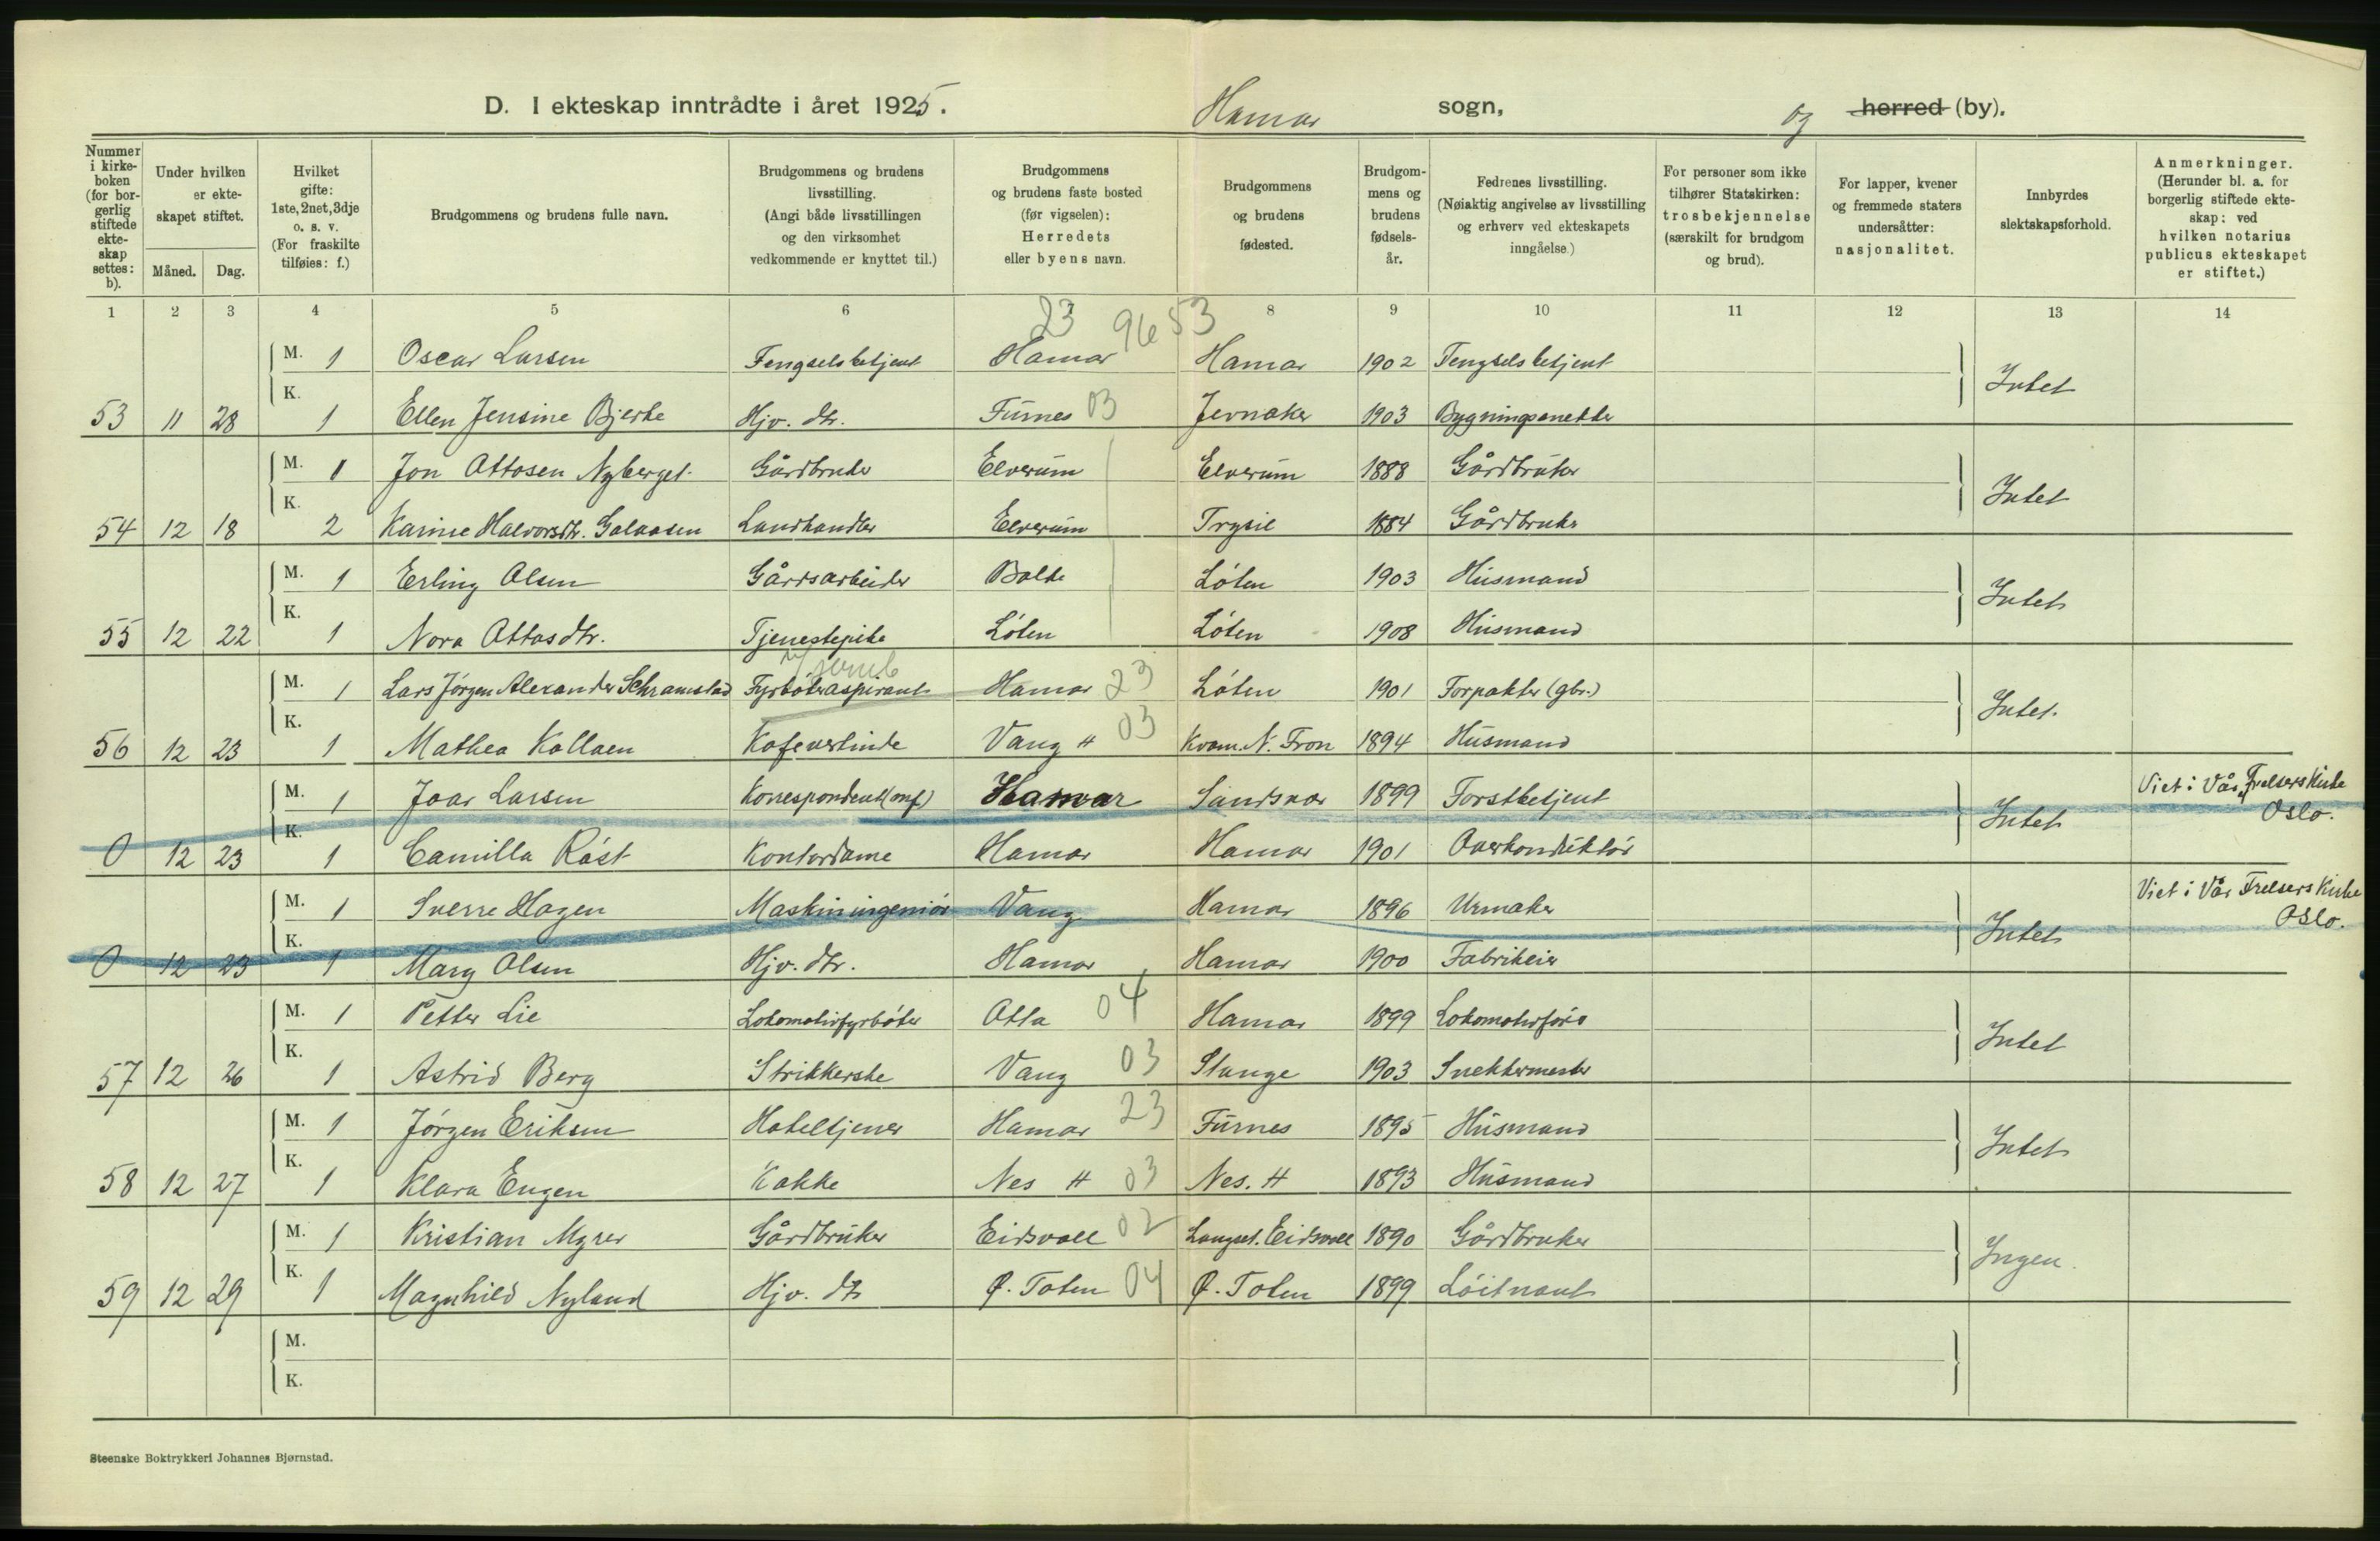 D. I ekteskap inntrådte i året 1925. Hamar sogn, og herred (by).
Nummer i kirkeboken (for borgerlig stiftede ekteskap settes: b).
Under hvilken er ekteskapet stiftet.
Måned. Dag.
Hvilket gifte: 1ste, 2net, 3dje o. s. v. (For fraskilte tilføies: f.)
Brudgommens og brudens fulle navn.
Brudgommens og brudens livsstilling. (Angi både livsstillingen og den virksomhet vedkommende er knyttet til.)
Brudgommens og brudens faste bosted (før vigselen): Herredets eller byens navn.
Brudgommens og brudens fødested.
Brudgommens og brudens fødselsår.
Fedrenes livsstilling. (Nøiaktig angivelse av livsstilling og erhverv ved ekteskapets inngåelse.)
For personer som ikke tilhører Statskirken: trosbekjennelse (særskilt for brudgom og brud).
For lapper, kvener og fremmede staters undersåtter: nasjonalitet.
Innbyrdes slektskapsforhold.
Anmerkninger. (Herunder bl. a. for borgerlig stiftede ekteskap: ved hvilken notarius publicus ekteskapet er stiftet.)
1 2 3 4 5 6 7 8 9 10 11 12 13 14
23 96 53
M. 1 Oscar Larsen Fengselsbetjent Hamar Hamar 1902 Fengselsbetjent Intet
53 11 28 K. 1 Ellen Jensine Bjerke Hjv. dtr. Furnes 03 Jevnaker 1903 Bygningssnekker
M. 1 Jon Ottosen Nyberget Gårdbruker Elverum Elverum 1888 Gårdbruker Intet
54 12 18 K. 2 Karine Halvorsdtr. Galaasen Landhandler Elverum Trysil 1884 Gårdbruker
M. 1 Erling Olsen Gårdsarbeider Balke Løten 1903 Husmand Intet
55 12 22 K. 1 Nora Ottosdtr. Tjenestepike Løten Løten 1908 Husmand
v/jernb
M. 1 Lars Jørgen Alexander Schramstad Fyrbøteraspirant Hamar 23 Løten 1901 Forpakter (gbr.) Intet.
56 12 23 K. 1 Mathea Kollaen Kafevertinde Vang H 03 Kvam. N. Fron 1894 Husmand
M. 1 Joar Larsen Korrespondent (mf.) Hamar Sandsvær 1899 Forstbetjent Intet Viet i Vår Frelsers Kirke Oslo.
0 12 23 K. 1 Camilla Røst Kontordame Hamar Hamar 1901 Overkonduktør
M. 1 Sverre Hagen Maskiningeniør Vang Hamar 1896 Urmaker Intet Viet i Vår Frelsers Kirke Oslo.
0 12 23 K. 1 Mary Olsen Hjv. dtr. Hamar Hamar 1900 Fabrikeier
M. 1 Petter Lie Lokomotivfyrbøter Otta 04 Hamar 1899 Lokomotivfører Intet
57 12 26 K. 1 Astrid Berg Strikkerske Vang 03 Stange 1903 Snekkermester
M. 1 Jørgen Eriksen Hoteltjener Hamar 23 Furnes 1895 Husmand Intet
58 12 27 K. 1 Klara Engen Kokke Nes H 03 Nes. H 1893 Husmand
M. 1 Kristian Myrer Gårdbruker Eidsvoll 02 Langset. Eidsvoll 1890 Gårdbruker Ingen.
59 12 29 K. 1 Magnhild Nyland Hjv. dtr Ø. Toten 04 Ø. Toten 1899 Løitnant
M.
K.
Steenske Boktrykkeri Johannes Bjørnstad.